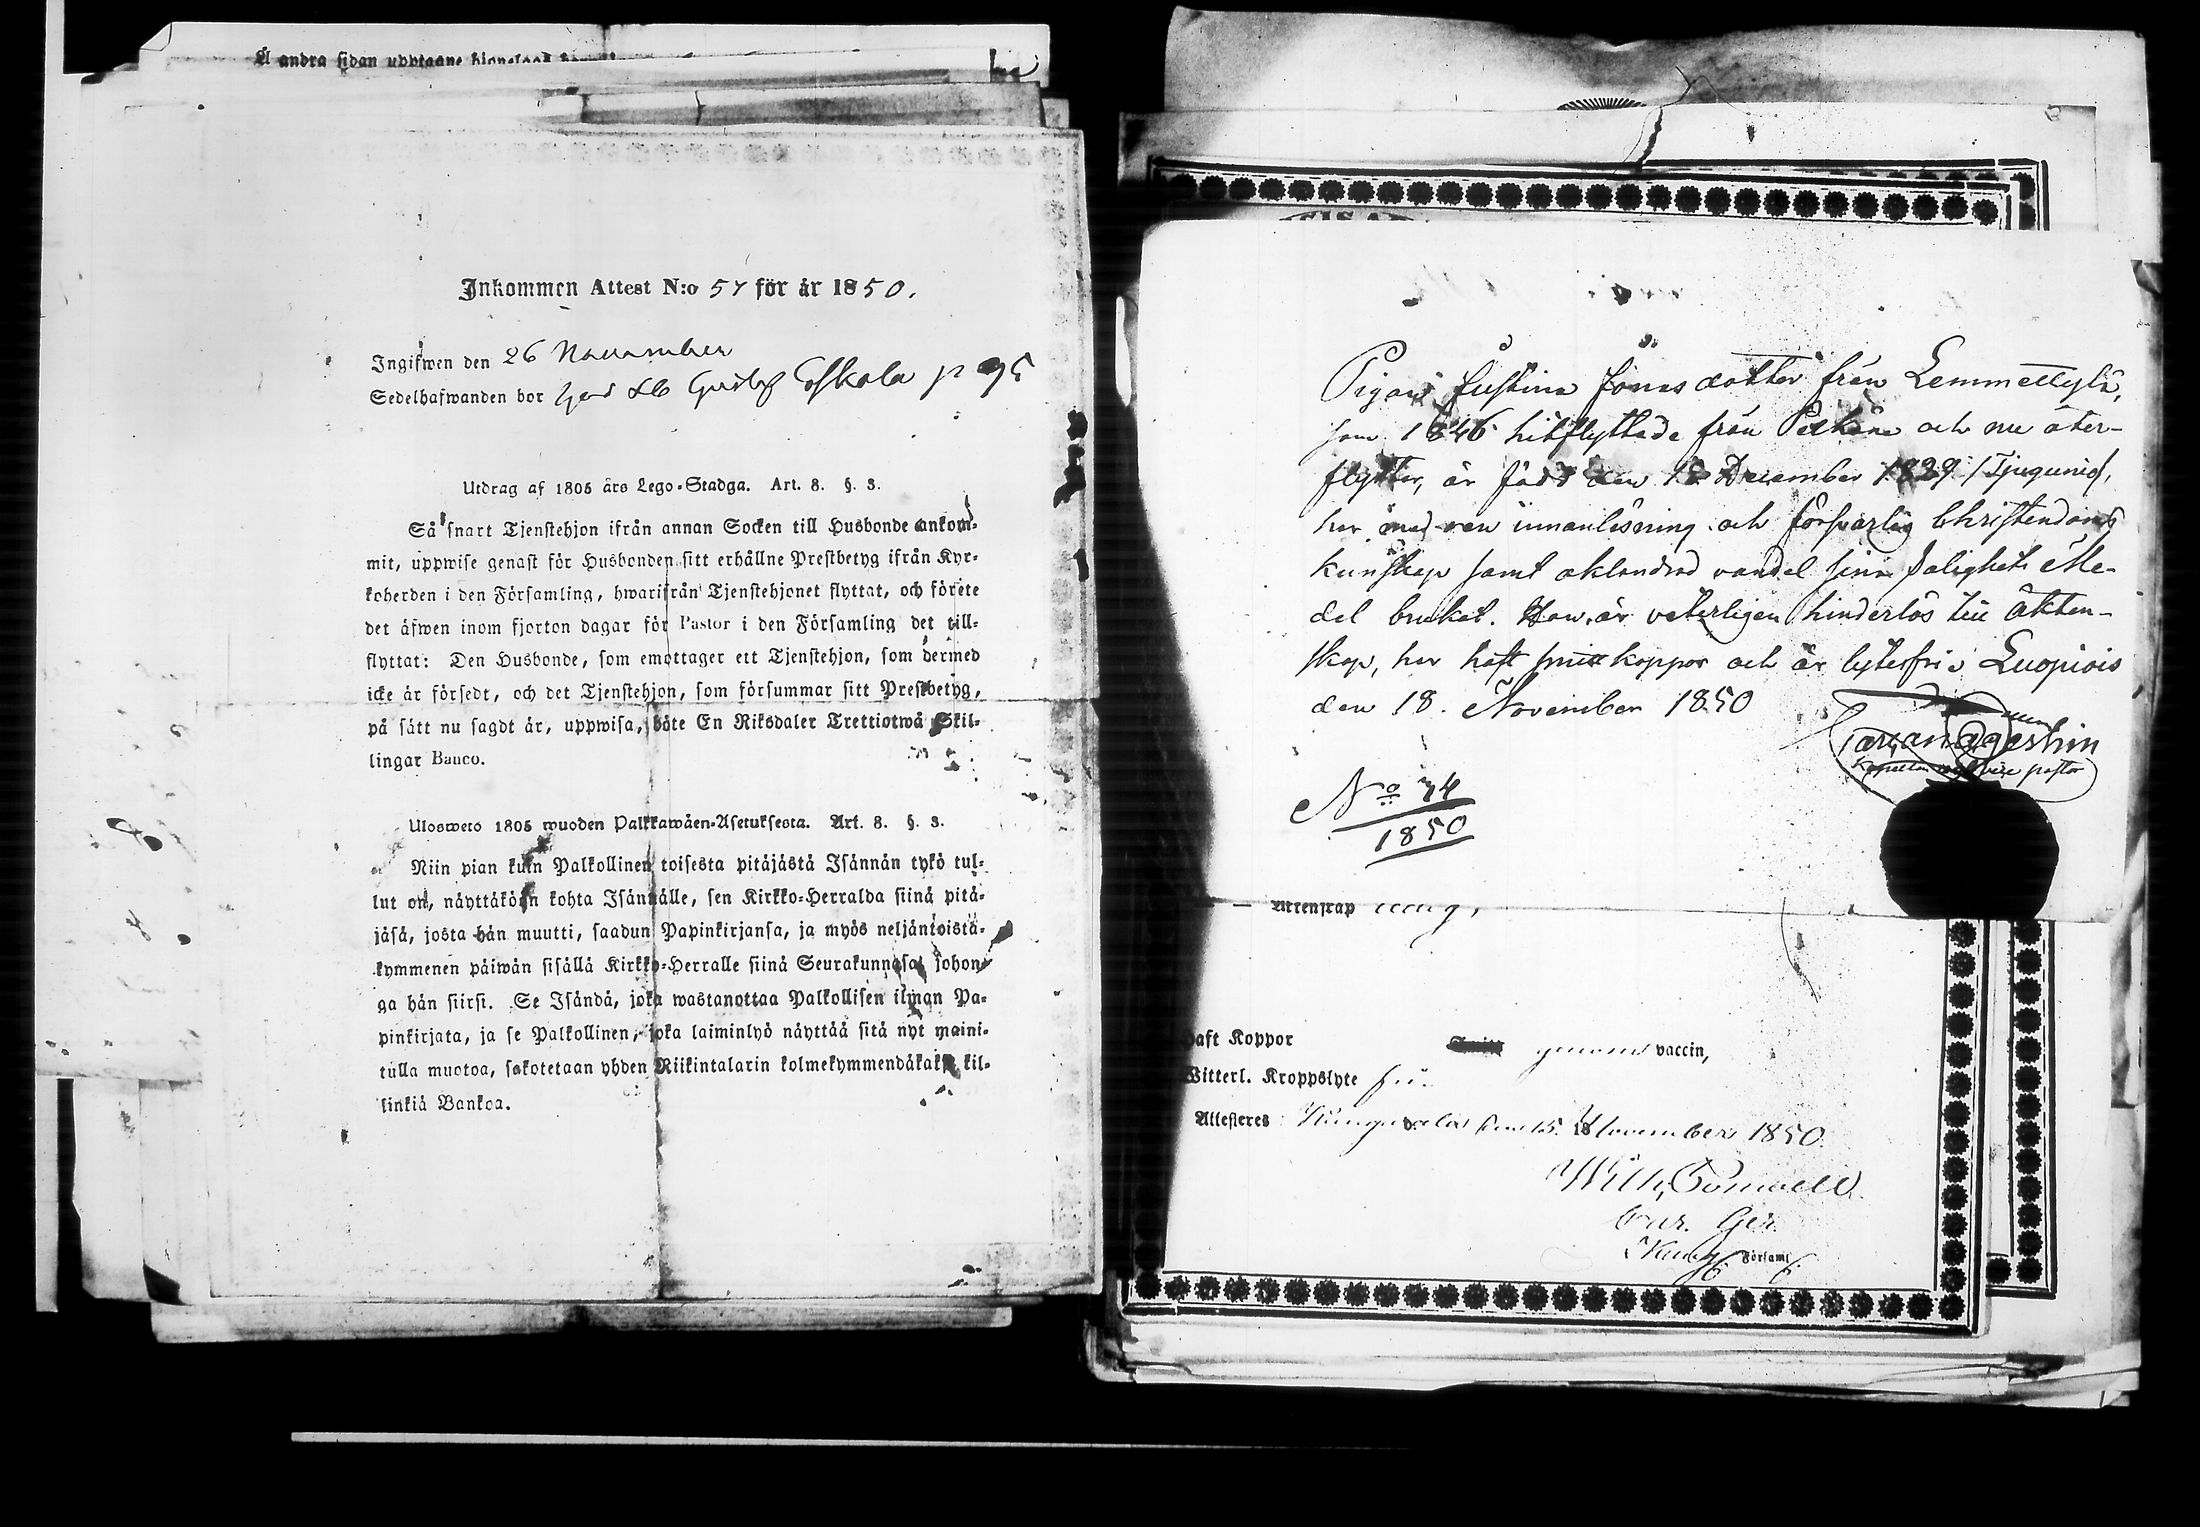 Å andra sidan upptagne
Inkommen Attest N:o 57 för år 1850.
Ingifwen den 26 November
Sedelhafwanden bor hos Gustaf Eskola p 95
Utdrag af 1805 års Lego-Stadga. Art. 8. §. 3.
Så snart Tjenstehjon ifrån annan Socken till Husbonde ankom-
mit, uppwise genast för Husbonden sitt erhållne Prestbetyg ifrån Kyr-
koherden i den Församling, hwarifrån Tjenstehjonet flyttat, och förete
det äfwen inom fjorton dagar för Pastor i den Församling det till-
flyttat: Den Husbonde, som emottager ett Tjenstehjon, som dermed
icke är försedt, och det Tjenstehjon, som försummar sitt Prestbetyg,
på sätt nu sagdt är, uppwisa, böte En Riksdaler Trettiotwå Skil-
lingar Banco.
Ulosweto 1805 wuoden Palkkawäen-Asetuksesta. Art. 8. §. 3.
Niin pian kuin Palkollinen toisesta pitäjästä Isännän tykö tul-
lut on, näyttäköön kohta Isännälle, sen Kirkko-Herralda siinä pitä-
jäsä, josta hän muutti, saadun Papinkirjansa, ja myös neljäntoistä-
kymmenen päiwän sisällä Kirkko-Herralle siinä Seurakunnasa, johon-
ga hän siirsi. Se Isändä, joka wastanottaa Palkollisen ilman Pa-
pinkirjata, ja se Palkollinen, joka laiminlyö näyttää sitä nyt maini-
tulla muotoa, sakotetaan yhden Riikintalarin kolmekymmendäkaksi kil-
linkiä Bankoa.
Pigan Justina Jonasdotter från Lemmettylä,
som 1846 hitflyttade från Pelkäne och nu åter-
flyttar, är född den 18 December 1829 /Tjugunio/,
har med ren innanläsning och försvarlig Christendoms
kunskap samt oklandrad vandel sina Salighets Me-
del brukat. Hon är veterligen hinderlös till Äkten-
skap, har haft smittkoppor och är lytesfri. Luopiois
den 18. November 1850
No 74
1850
Äktenskap ledig,
Haft Koppor genom vaccin,
Witterl. Kroppslyte fri.
Attesteres Kungs den 15. November 1850.
Wilh.
Församl.